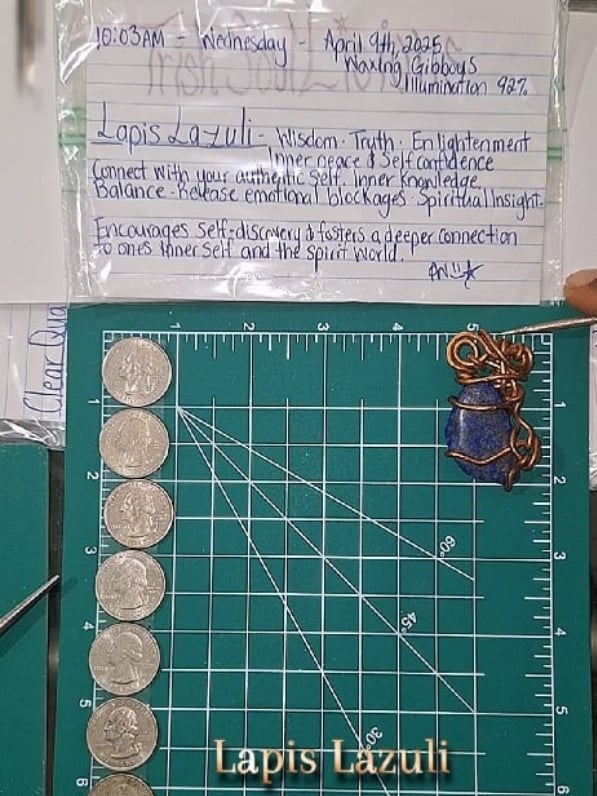 10:03AM - Wednesday - April 9th, 2025
Waxing Gibbous
Illumination 92%
Lapis Lazuli - Wisdom · Truth · Enlightenment
Inner peace & Self confidence
Connect with your authentic self. Inner Knowledge.
Balance · Release emotional blockages · Spiritual Insight.
Encourages Self-discovery & fosters a deeper connection
to ones inner self and the spirit world.
Clear Qua
1 2 3 4 5
1
2
3
4
5
6
1
2
3
4
5
6
60°
45°
30°
Lapis Lazuli